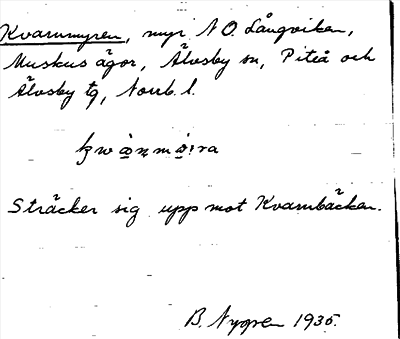 Kvarnmyren, myr N O. Långviken,
Muskus ägor, Älvsby sn, Piteå och
Älvsby tg, Norrb. l.
Sträcker sig upp mot Kvarnbäcken.
B. Nygren 1935.